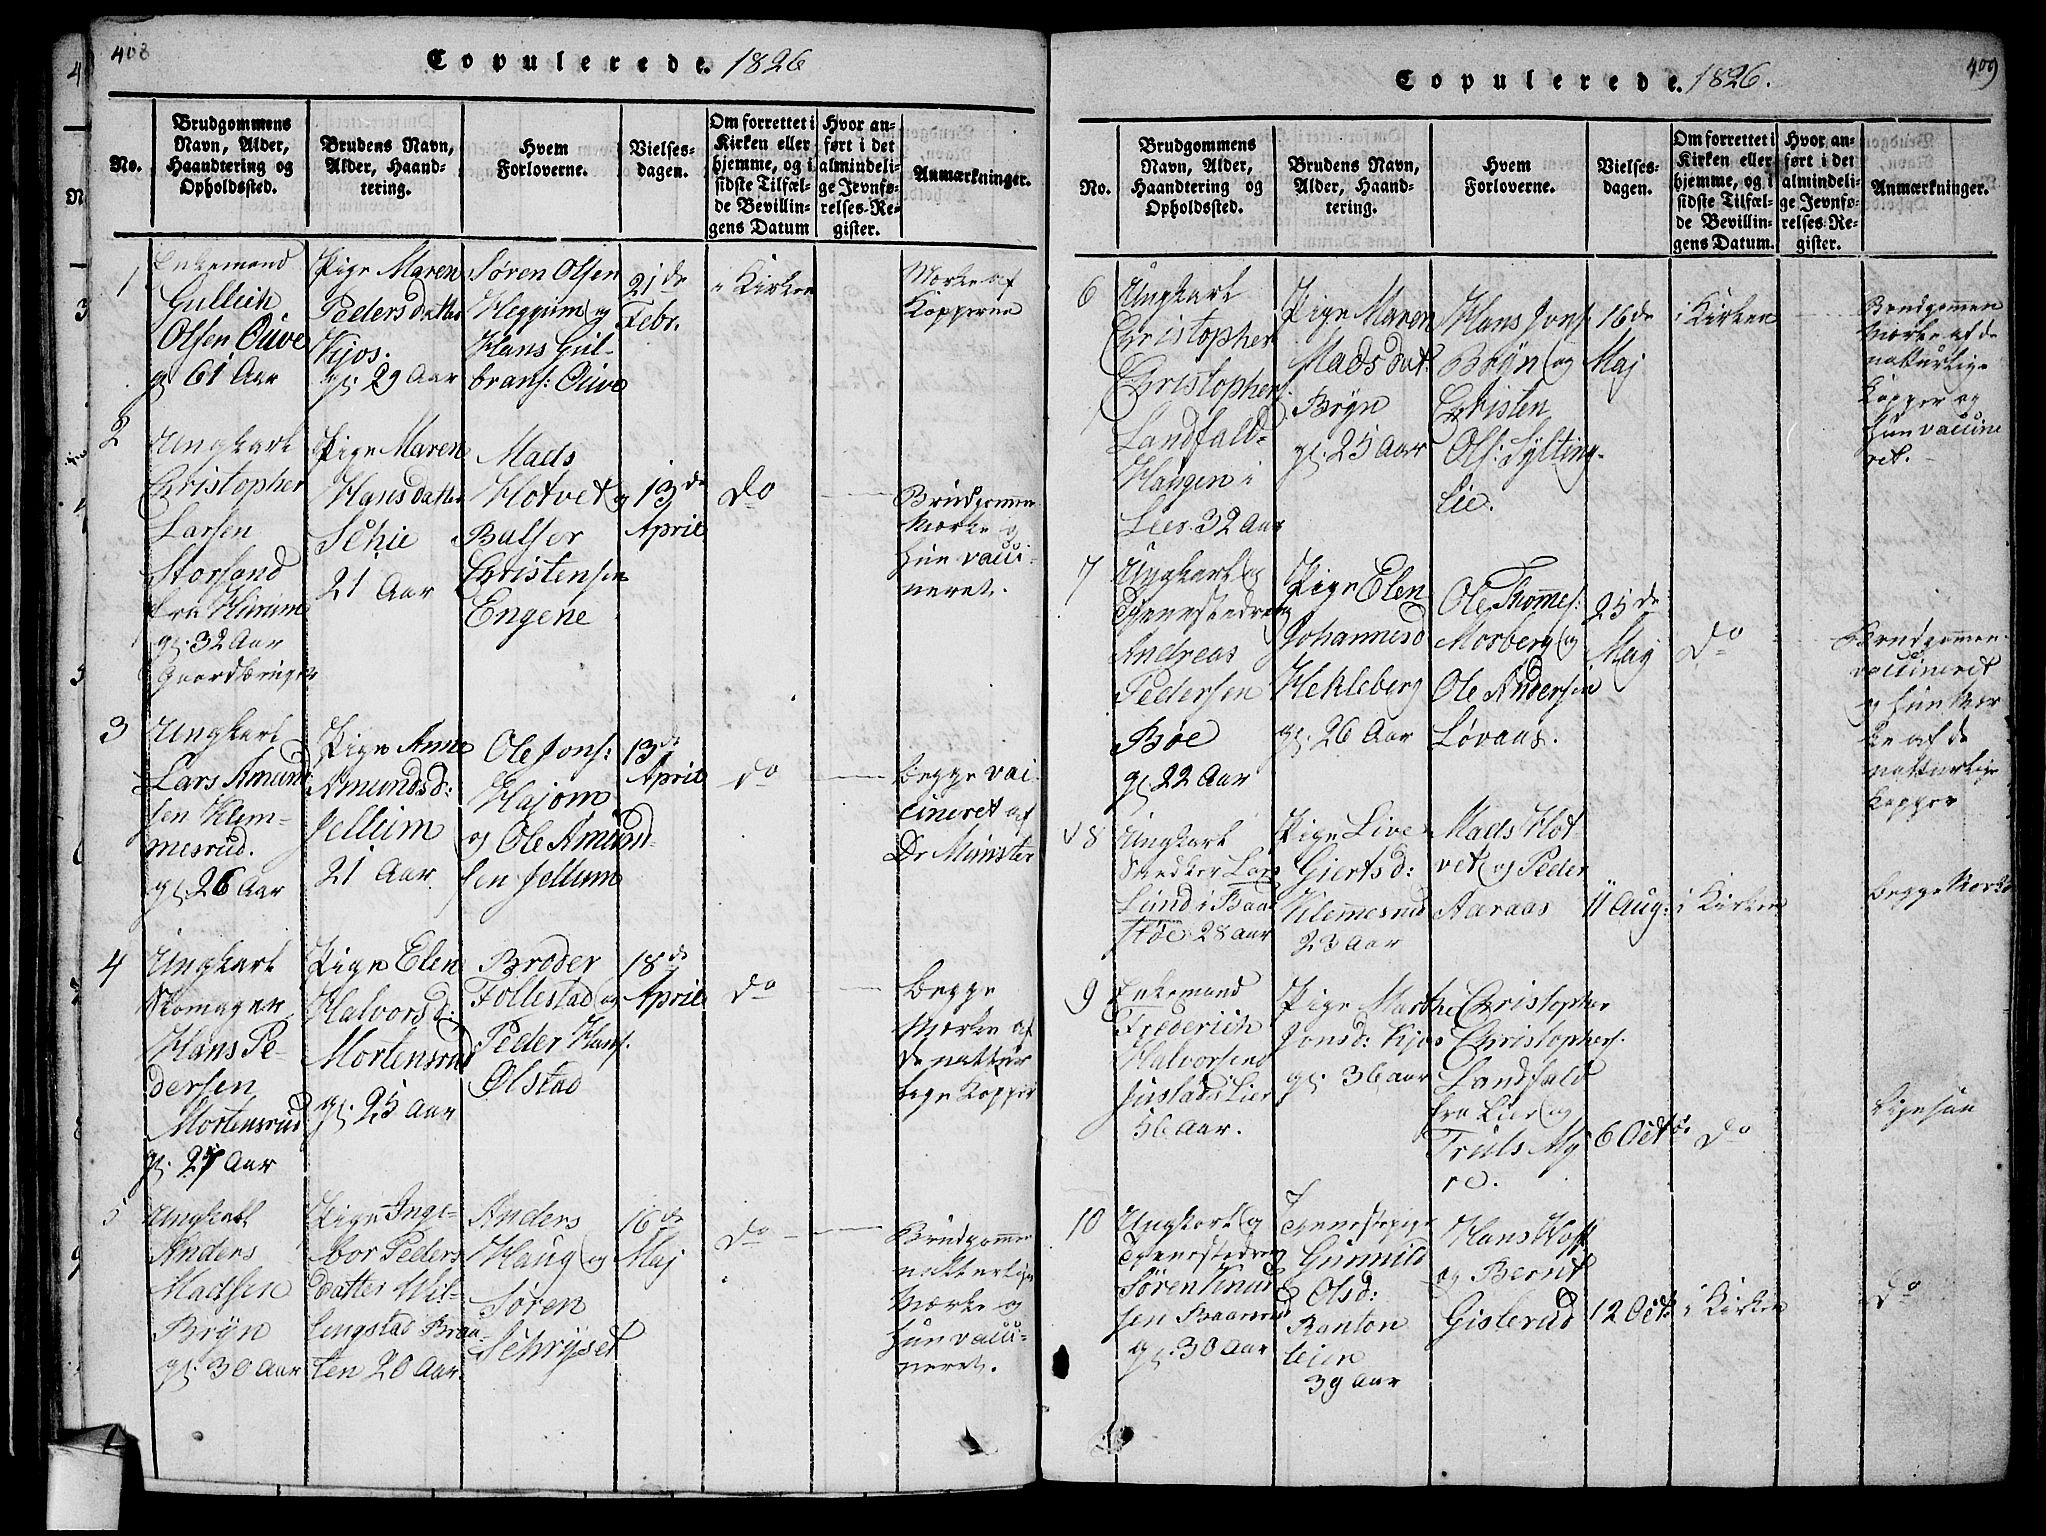 408
Copulerede. 1826
No.
Brudgommens
Navn, Alder,
Haandtering og
Opholdssted.
Brudens Navn,
Alder, Haand-
tering.
Hvem
Forloverne.
Vielses-
dagen.
Om forrettet i
Kirken eller
hjemme, og i
sidste Tilfæl-
de Bevillin-
gens Datum
Hvor an-
ført i det
almindeli-
ge Jevnfø-
relses-Re-
gister.
Anmærkninger.
1
Enkemand
Gullich
Olsen Ouve
gl 61 Aar
Pige Maren
Pedersdatter
Kjos.
gl. 29 Aar
Søren Olsen
Heggum og
Hans Gul-
brans: Ouve
21de
Febr.
i Kirken
Mærke af
Kopperne
2
Ungkarl
Christopher
Larsen
Storsand
fra Hurum
gl. 32 Aar
Gaardbruger
Pige Maren
Hansdatter
Schie
21 Aar
Mads
Hotvet og
Balser
Christensen
Engene
13de
April
Do
Brudgommen
Mærke og
hun vacci-
neret.
3
Ungkarl
Lars Amund
sen Klem-
mesrud.
gl. 26 Aar
Pige Anne
Amundsd:
Jellum
21 Aar
Ole Jons:
Hajom
og Ole Amund-
sen Jellum
13de
April
Do
begge vac-
cineret af
Dr Munster
4
Ungkarl
Skomager
Hans Pe-
dersen
Mortensrud
gl. 27 Aar
Pige Elen
Halvorsd:
Mortensrud
gl. 25 Aar
Broder
Follestad og
Peder Hans.
Ølstad
18de
April
Do
begge
Mærke af
de nattur
lige Kopper
5
Ungkarl
Anders
Madsen
Brÿn
gl. 30 Aar
Pige Inge-
bor Peders
datter Wil-
lengstad Braa-
ten 20 Aar.
Anders
Haug og
Søren
Schrÿset
16de
Maj
Do
Brudgommen
naturlige
Mærke og
hun vacci-
neret.
409
Copulerede. 1826.
No.
Brudgommens
Navn, Alder,
Haandtering og
Opholdssted.
Brudens Navn,
Alder, Haand-
tering.
Hvem
Forloverne.
Vielses-
dagen.
Om forrettet i
Kirken eller
hjemme, og i
sidste Tilfæl-
de Bevillin-
gens Datum.
Hvor an-
ført i det
almindeli-
ge Jevnfø-
relses-Re-
gister.
Anmærkninger.
6
Ungkarl
Christopher
Christophers.
Landfald-
Haugen i
Lier. 32 Aar
Pige Maren
Madsdat:
Brÿn
gl. 25 Aar
Hans Jons.
Brÿn og
Christen
Ols: Sÿlting-
lie.
16de
Maj
i Kirken
Brudgommen
Mærke af de
natturlige
Kopper og
hun vaccine
ret.
7
Ungkarl og
Tjenestedreng
Andreas
Pedersen
Bøe
gl 22 Aar
Pige Elen
Johannesd
Hekleberg
gl. 26 Aar
Ole Thomes:
Morberg og
Ole Andersen
Løvaas.
25de
Maj
Do
Brudgommen
vaccineret
og hun Mær
ke af de
natturlige
Kopper
8
Ungkarl
Snedker Lars
Lund i Baa
støe: 28 aar
Pige Live
Giertsd:
Klemmesrud
23 Aar
Mads Hot
vet og Peder
Aaraas
11 Aug:
i Kirken
begge Mærke
9
Enkemand
Frederich
Halvorsen
Justad i Lier
56 Aar.
Pige Marthe
Jonsd: Kjos
gl. 36 aar
Christopher
Christophers.
Landfald
fra Lier og
Truls My
re.
6 Octb:
Do
Ligesaa
10
Ungkarl og
Tjenestedreng
Søren Knud
sen Baarsrud
gl. 30 Aar
Tjenestepige
Gunnild
Olsd:
Ranton
leien
39 Aar
Hans Hoff
og Bernt
Gisterud
12 Oct:
i Kirken
Do